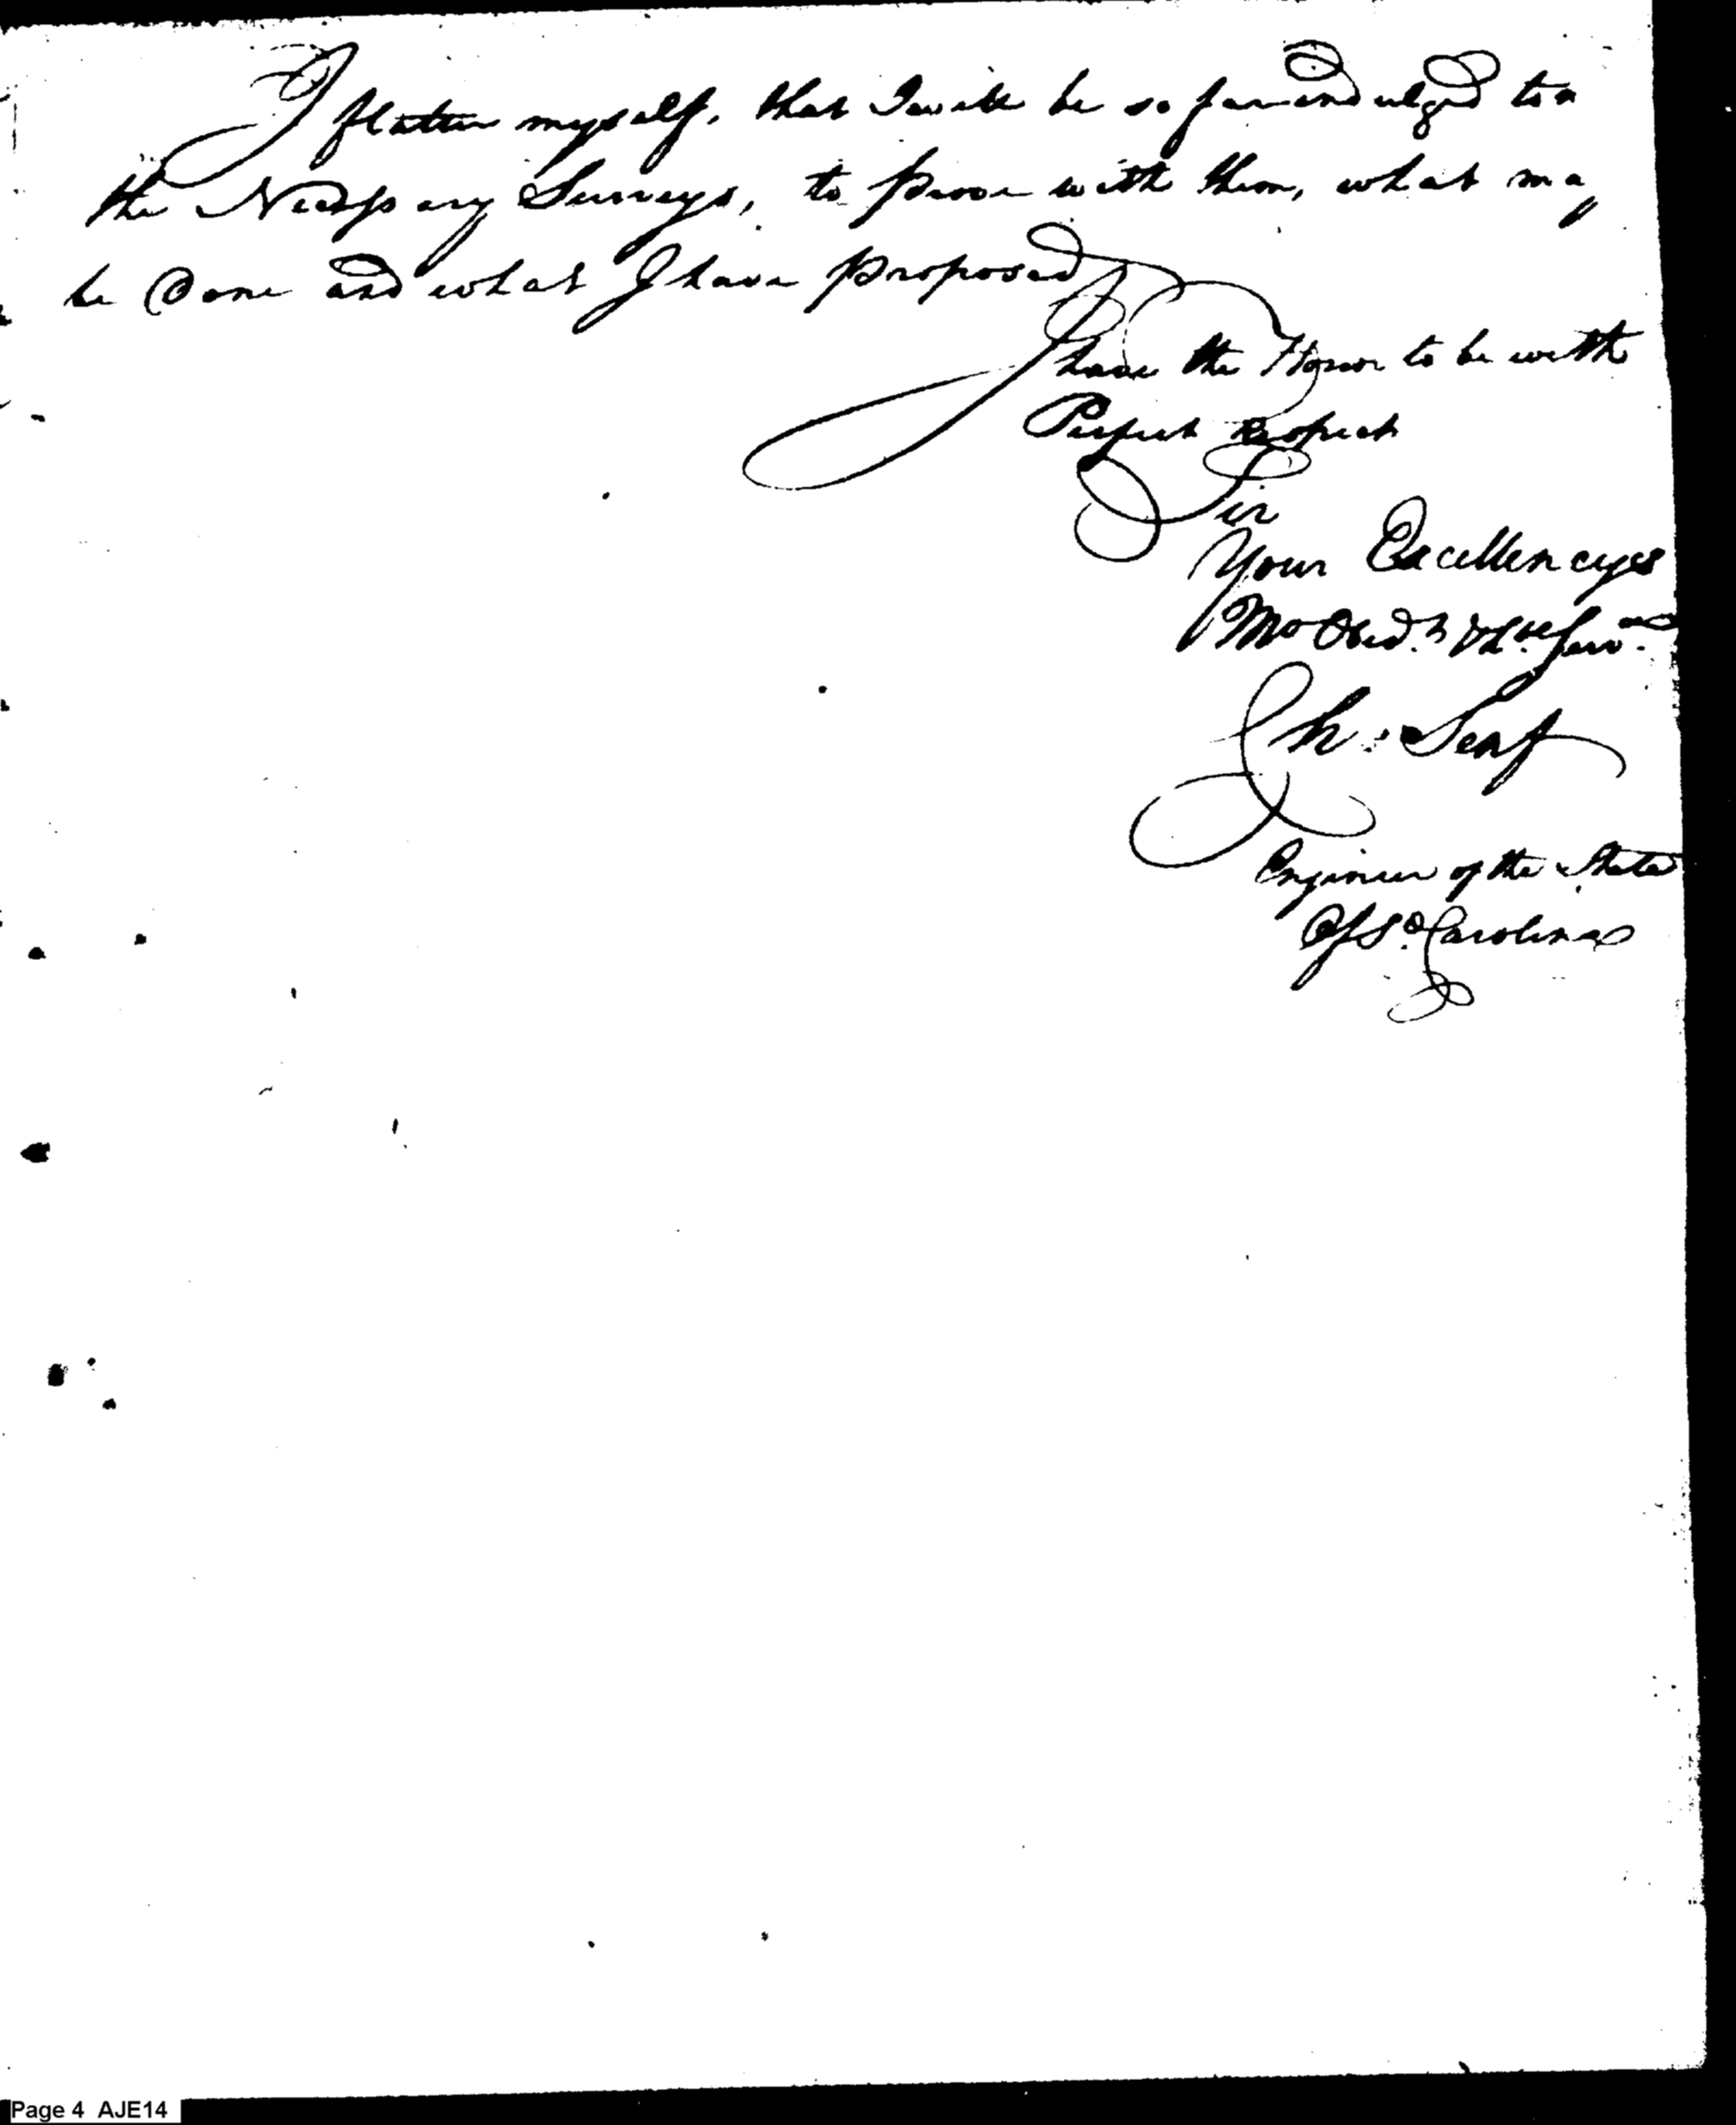 I flatter myself, that I will be so far indulged to a
the Necessary Surveys, to prove with them, what may
be Done and what I have proposed
I have the Honor to be with
Perfect Respect
Sir
Your Excellencys
Mo Obed.t & H.le Serv.
Ch: Senf
Engineer of the State
Of So Carolina
Page 4 AJE14